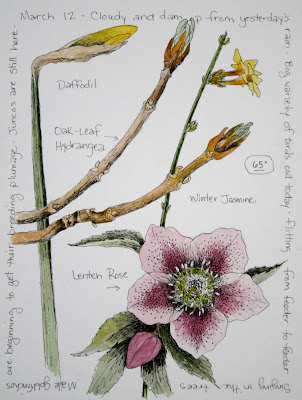 March 12 · Cloudy and damp from yesterday's
rain · Big variety of birds out today · flitting from feeder to feeder
Singing in the trees · Male goldfinches
are beginning to get their breeding plumage. Juncos are still here.
Daffodil
Oak-Leaf
Hydrangea
65°
Winter Jasmine
Lenten Rose